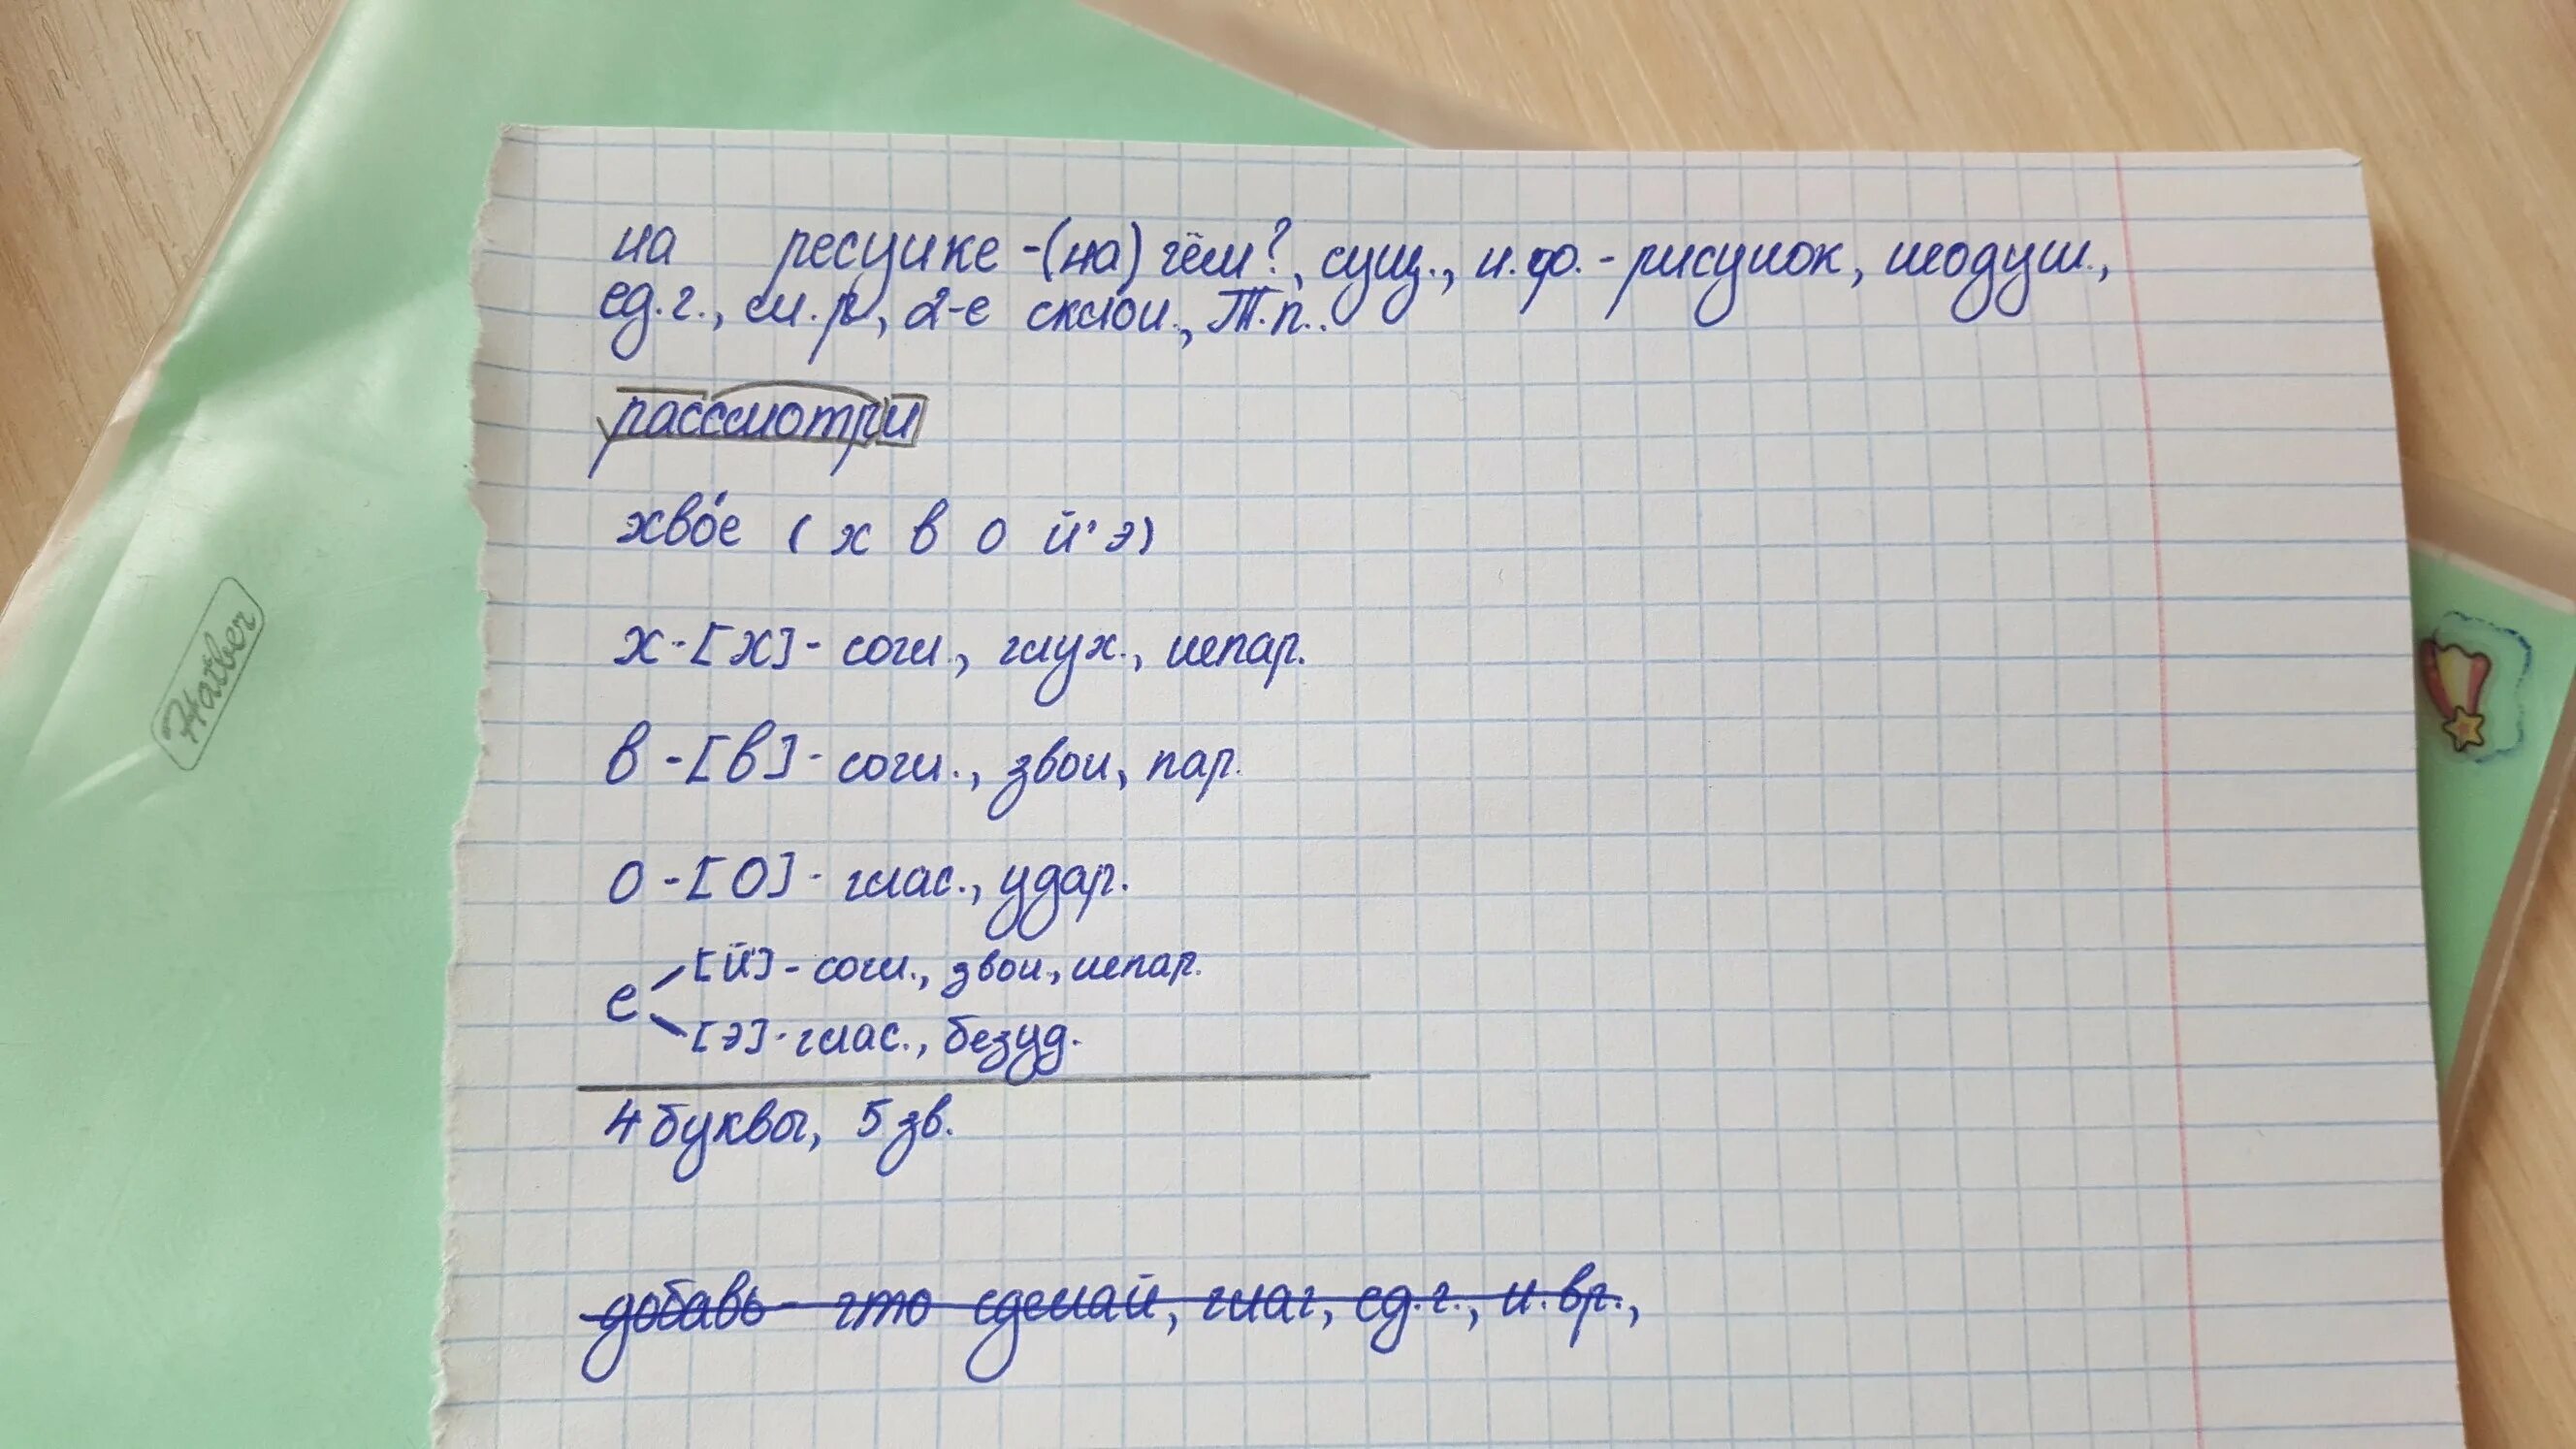 на ресунке -(на) чём?, сущ., н.ф. - рисунок, неодуш.,
ед.ч., м.р, 2-е склон., Т.п..
рассмотри
хво́е ( х в о й' э)
х - [х] - согл., глух., непар.
в - [в] - согл., звон, пар.
о - [о] - глас., удар.
е
[й'] - согл., звон., непар.
[э] - глас., безуд.
4 буквы, 5 зв.
добавь - что сделай, глаг, ед.ч., н.вр.,
Hatber